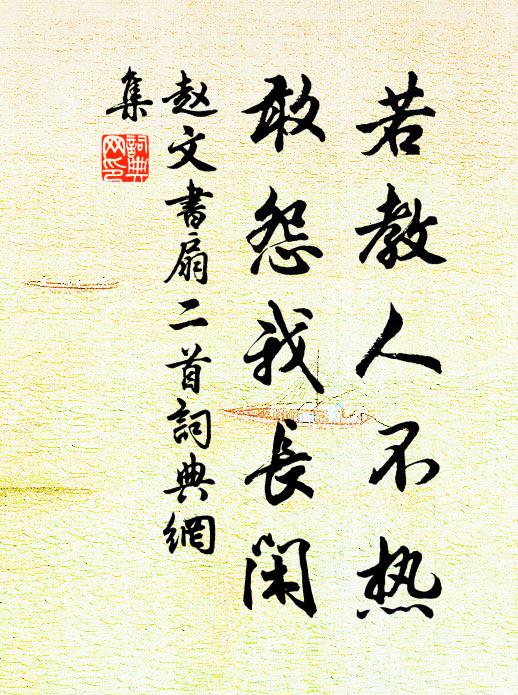 若教人不热
敢怨我长闲
赵文书扇二首词典網
集
詞典
网印